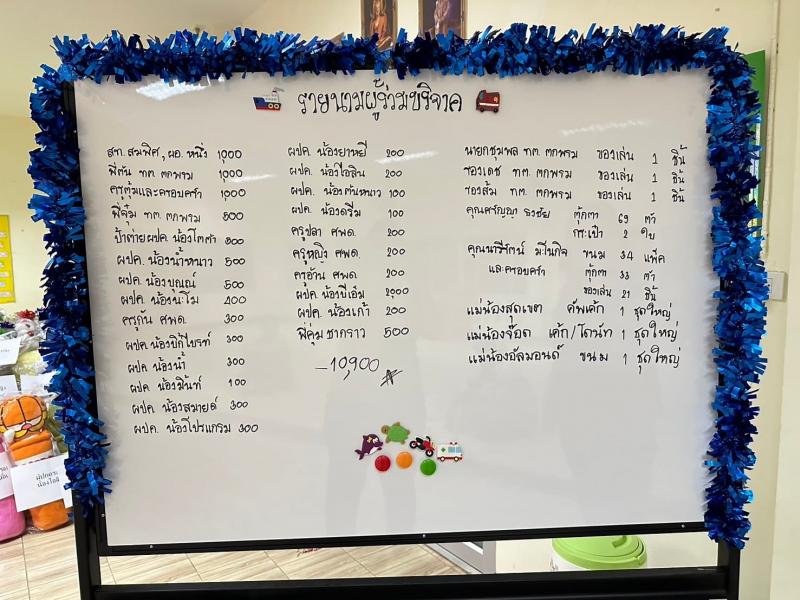 รายนามผู้ร่วมบริจาค
สท. สมพิศ, ผอ. หนึ่ง 1,000
พี่ตัน ทต. ตกพรม 1,000
ครูตุ้มและครอบครัว 1,000
พี่จุ๋ม ทต. ตกพรม 500
ป้าต่ายผปค. น้องโตต้า 300
ผปค. น้องน้ำหนาว 500
ผปค. น้องบุณณ์ 500
ผปค. น้องนะโม 400
ครูกัน ศพด. 300
ผปค. น้องบิ๊กไบรท์ 300
ผปค. น้องน้ำ 300
ผปค. น้องมิ้นท์ 100
ผปค. น้องสมายด์ 300
ผปค. น้องโปรแกรม 300
ผปค. น้องยาหยี 200
ผปค. น้องไอสิน 200
ผปค. น้องต้นหนาว 100
ผปค. น้องดรีม 100
ครูปลา ศพด. 200
ครูหญิง ศพด. 200
ครูอ้วน ศพด 200
ผปค. น้องบีเอ็ม 2,000
ผปค. น้องเก้า 200
พี่คุ่ม ซากราว 500
–10,900
นายกชุมพล ทต. ตกพรม ของเล่น 1 ชิ้น
รองเดช ทต. ตกพรม ของเล่น 1 ชิ้น
รองส้ม ทต. ตกพรม ของเล่น 1 ชิ้น
คุณศรัญญา ธงชัย ตุ๊กตา 69 ตัว
กระเป๋า 2 ใบ
คุณนารีรัตน์ มะโนกิจ ขนม 34 แพ็ค
และครอบครัว ตุ๊กตา 33 ตัว
ของเล่น 21 ชิ้น
แม่น้องสุดเขต คัพเค้ก 1 ชุดใหญ่
แม่น้องจ๊อด เค้ก/โดนัท 1 ชุดใหญ่
แม่น้องอัลมอนด์ ขนม 1 ชุดใหญ่